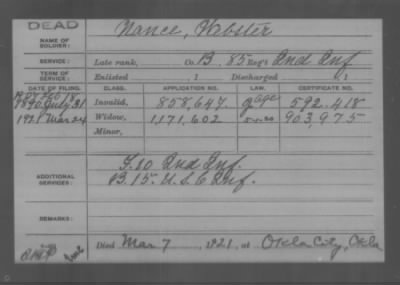 DEAD
NAME OF SOLDIER: Nance, Webster
SERVICE: Late rank, Co. B. 85 Reg't Ind Inf
TERM OF SERVICE: Enlisted , 1 Discharged , 1
DATE OF FILING. CLASS. APPLICATION NO. LAW. CERTIFICATE NO.
1890 July 31 Invalid, 858,647 Age 592.418
1921 Mar 24 Widow, 1,171,602 903,975
Minor,
ADDITIONAL SERVICES: F. 80 Ind Inf.
B. 15. U.S.C Inf.
REMARKS:
Died Mar 7, 1921, at Okla City, Okla